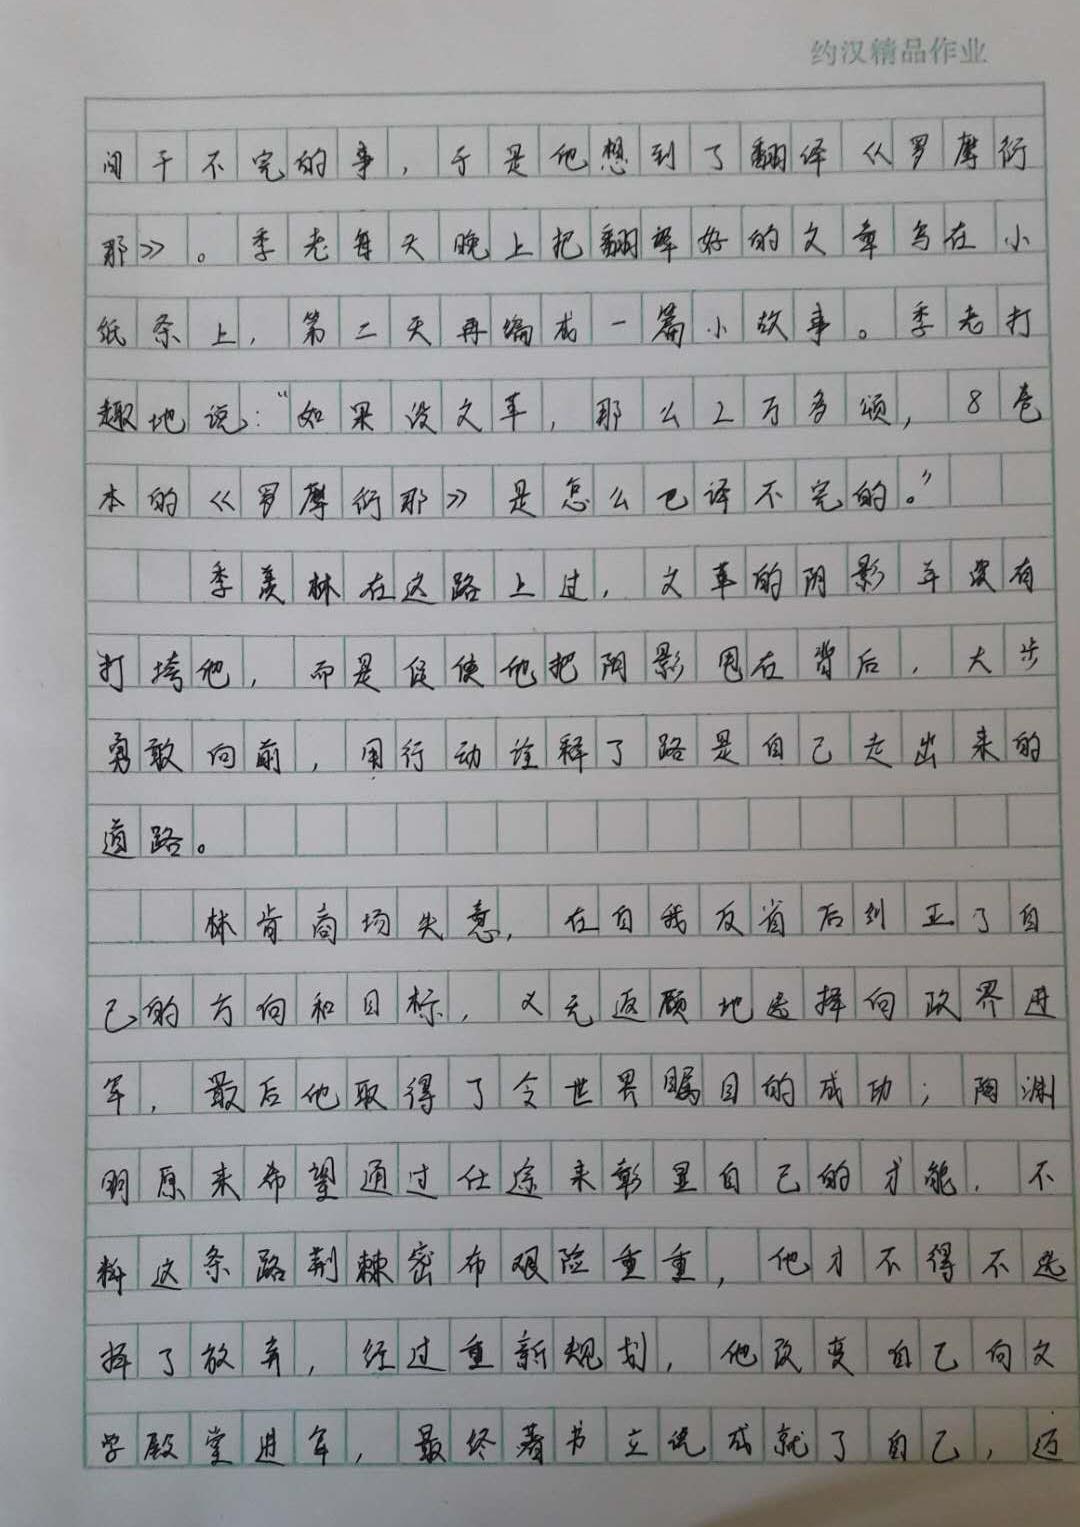 约汉精品作业
间干不完的事，于是他想到了翻译《罗摩衍
那》。季老每天晚上把翻译好的文章写在小
纸条上，第二天再编成一篇小故事。季老打
趣地说：“如果没文革，那么2万多颂，8卷
本的《罗摩衍那》是怎么也译不完的。”
季羡林在这路上过，文革的阴影并没有
打垮他，而是促使他把阴影甩在背后，大步
勇敢向前，用行动诠释了路是自己走出来的
道路。
林肯商场失意，在自我反省后纠正了自
己的方向和目标，义无返顾地选择向政界进
军，最后他取得了令世界瞩目的成功；陶渊
明原来希望通过仕途来彰显自己的才能，不
料这条路荆棘密布艰险重重，他才不得不选
择了放弃，经过重新规划，他改变自己向文
学殿堂进军，最终著书立说成就了自己，迈